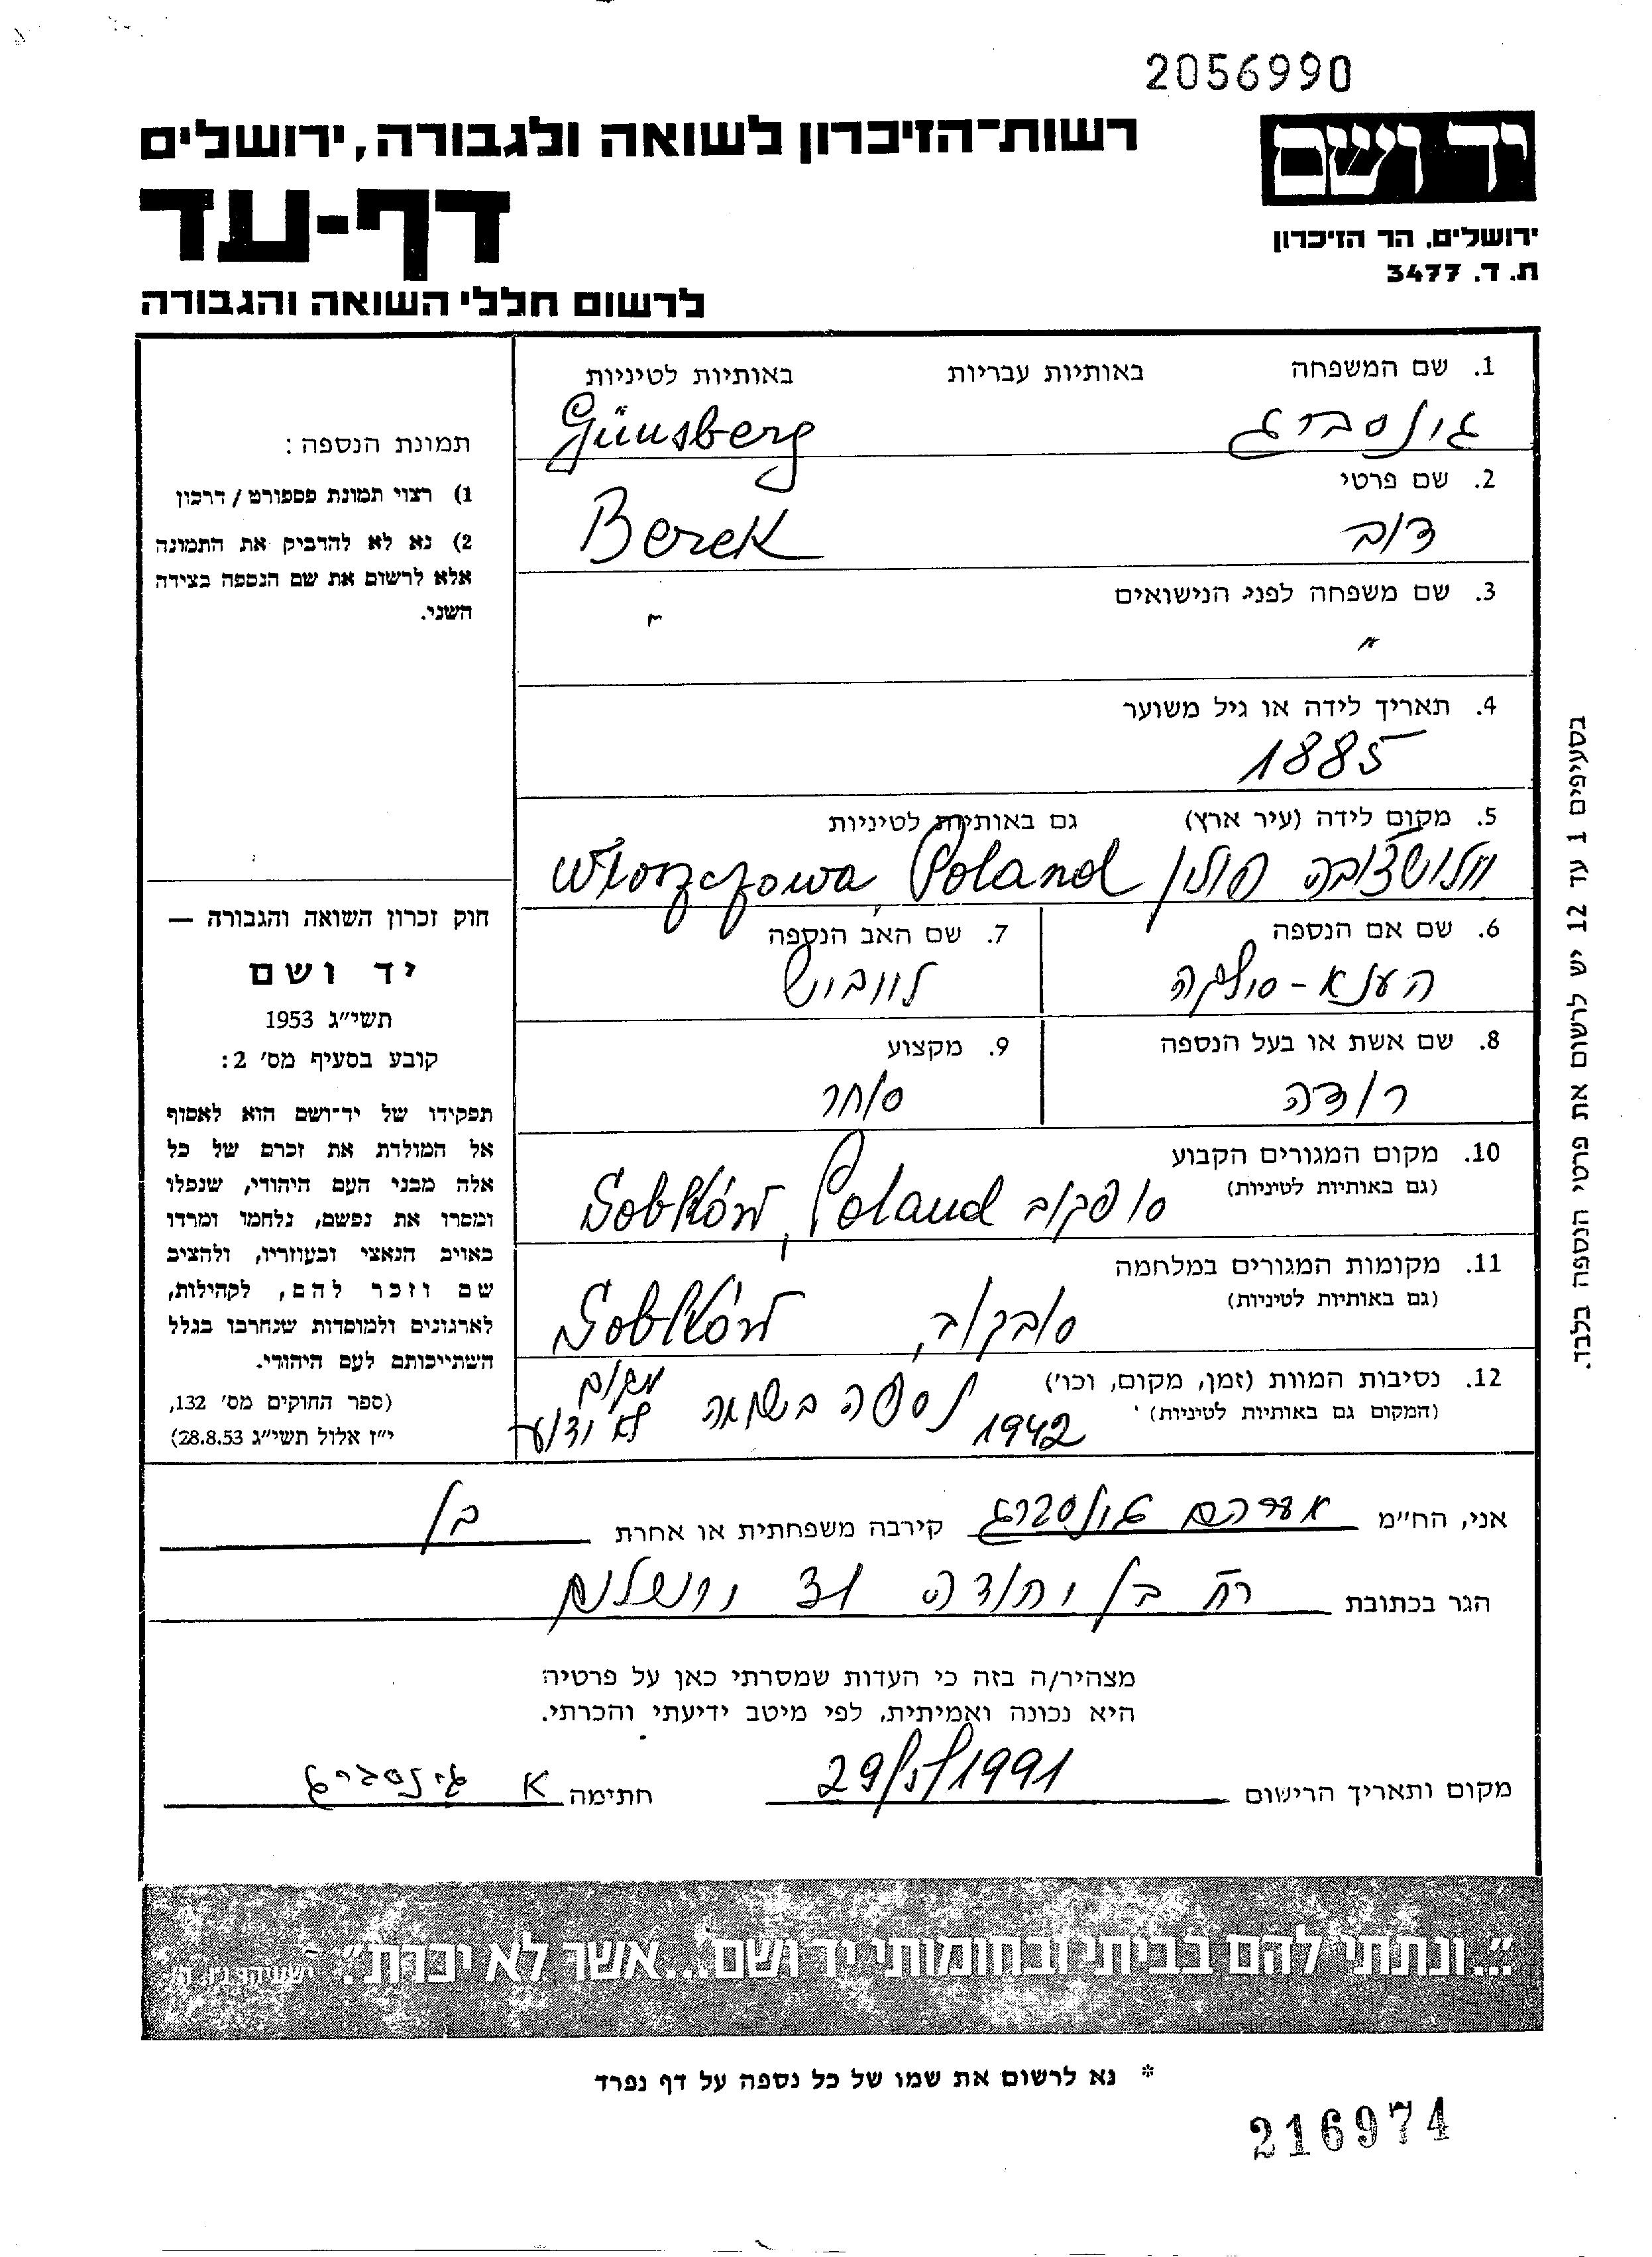 2056990
רשות-הזיכרון לשואה ולגבורה, ירושלים
יד ושם
דף-עד
ירושלים, הר הזיכרון
ת. ד. 3477
לרשום חללי השואה והגבורה
1. שם המשפחה באותיות עבריות באותיות לטיניות
גינסברג Günsberg
2. שם פרטי
דוב Berek
3. שם משפחה לפני הנישואים
" "
4. תאריך לידה או גיל משוער
1885
5. מקום לידה (עיר ארץ) גם באותיות לטיניות
פולין Wloszczowa, Poland
6. שם אם הנספה
7. שם האב הנספה
8. שם אשת או בעל הנספה
9. מקצוע
סוחר
10. מקום המגורים הקבוע
(גם באותיות לטיניות)
סובקוב Sobków, Poland
11. מקומות המגורים במלחמה
(גם באותיות לטיניות)
סובקוב, Sobków
12. נסיבות המוות (זמן, מקום, וכו')
(המקום גם באותיות לטיניות)
1942 נספה בשואה מקום לא ידוע
תמונת הנספה:
1) רצוי תמונת פספורט / דרכון
2) נא לא להדביק את התמונה
אלא לרשום את שם הנספה בצידה
השני.
חוק זכרון השואה והגבורה —
יד ושם
תשי"ג 1953
קובע בסעיף מס' 2:
תפקידו של יד־ושם הוא לאסוף
אל המולדת את זכרם של כל
אלה מבני העם היהודי, שנפלו
ומסרו את נפשם, נלחמו ומרדו
באויב הנאצי ובעוזריו, ולהציב
שם וזכר להם, לקהילות,
לארגונים ולמוסדות שנחרבו בגלל
השתייכותם לעם היהודי.
(ספר החוקים מס' 132,
י"ז אלול תשי"ג 28.8.53)
בסעיפים 1 עד 12 יש לרשום את פרטי הנספה בלבד.
אני, הח"מ אברהם גינסברג קירבה משפחתית או אחרת בן
הגר בכתובת רח בן יהודה 31 ירושלים
מצהיר/ה בזה כי העדות שמסרתי כאן על פרטיה
היא נכונה ואמיתית, לפי מיטב ידיעתי והכרתי.
מקום ותאריך הרישום 29/5/1991 חתימה א גינסברג
"...ונתתי להם בביתי ובחומותי יד ושם...אשר לא יכרת". ישעיהו נו, ה'
* נא לרשום את שמו של כל נספה על דף נפרד
216974